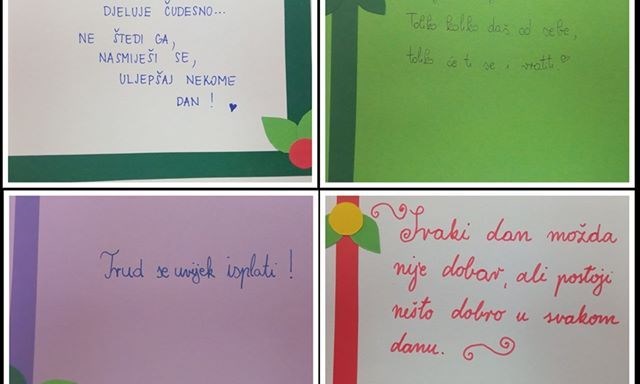 DJELUJE ČUDESNO...
NE ŠTEDI GA,
NASMIJEŠI SE,
ULJEPŠAJ NEKOME
DAN !
Toliko koliko daš od sebe,
toliko će ti se i vratiti.
Trud se uvijek isplati !
Svaki dan možda
nije dobar, ali postoji
nešto dobro u svakom
danu.